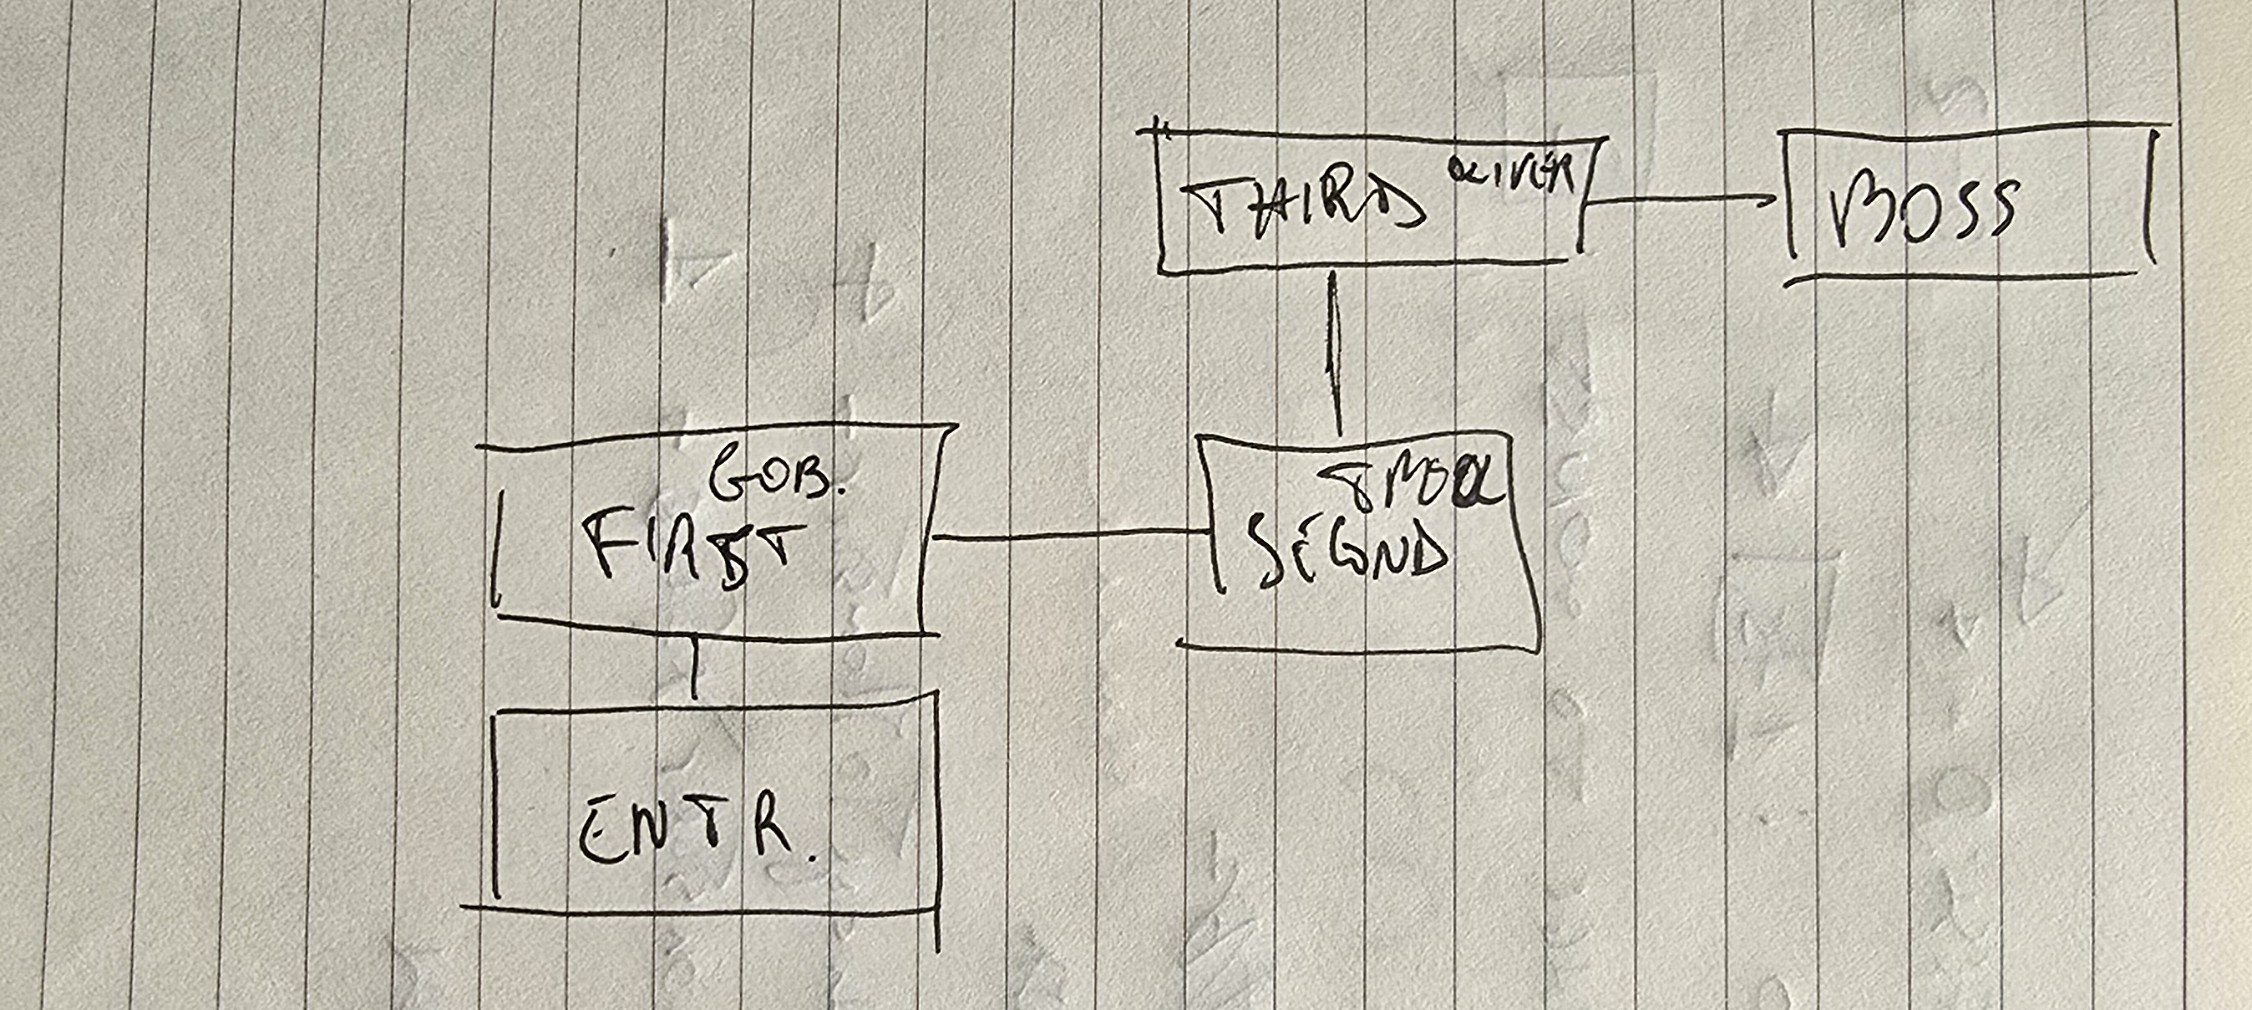 THIRD OLIVER
BOSS
GOB.
FIRST
SECOND
ENTR.